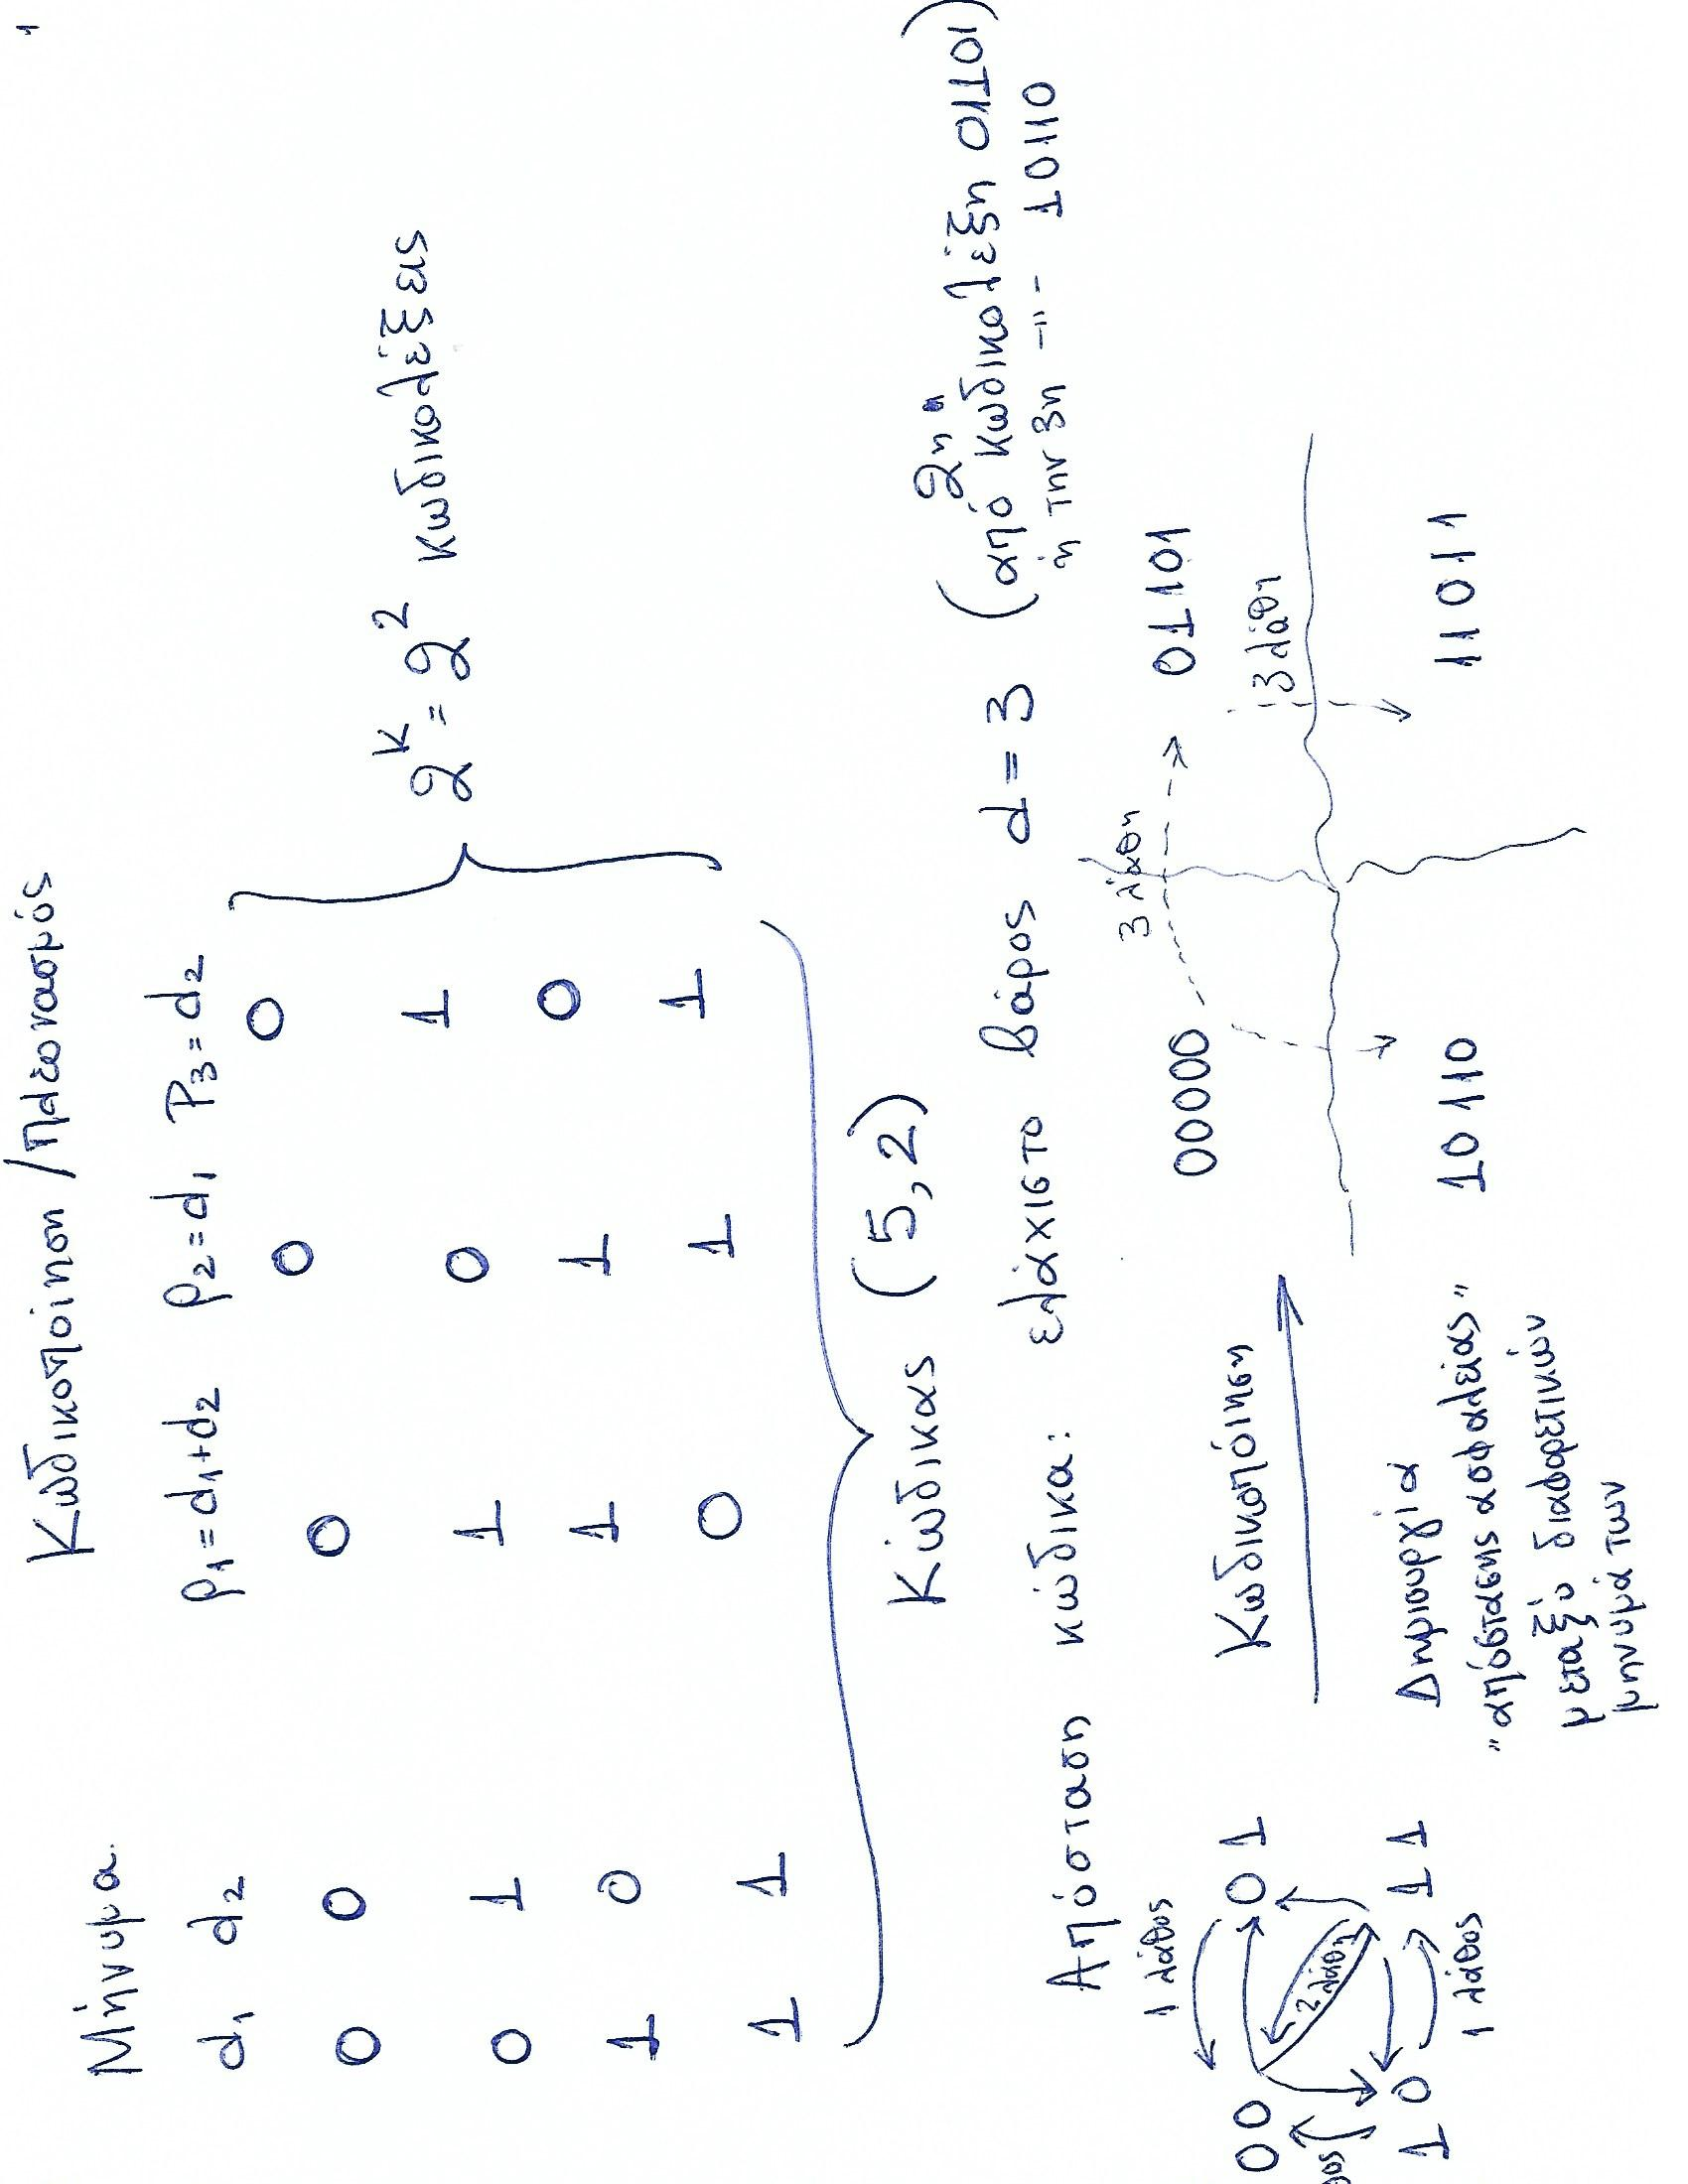 1
Κωδικοποίηση / πλεονασμός
Μήνυμα
d1 d2 p1=d1+d2 p2=d1 p3=d2
0 0 0 0 0
0 1 1 0 1
1 0 1 1 0
1 1 0 1 1
2^k = 2^2 κωδικολέξεις
Κώδικας (5,2)
Απόσταση κώδικα: ελάχιστο βάρος d=3 (από 2η κωδικολέξη 01101)
ή την 3η -"- 10110
1 λάθος
00 01
2 λάθη
10 11
1 λάθος
Κωδικοποίηση
Δημιουργία
"απόστασης ασφαλείας"
μεταξύ διαφορετικών
μηνυμάτων
3 λάθη
00000 01101
3 λάθη
10110 11011